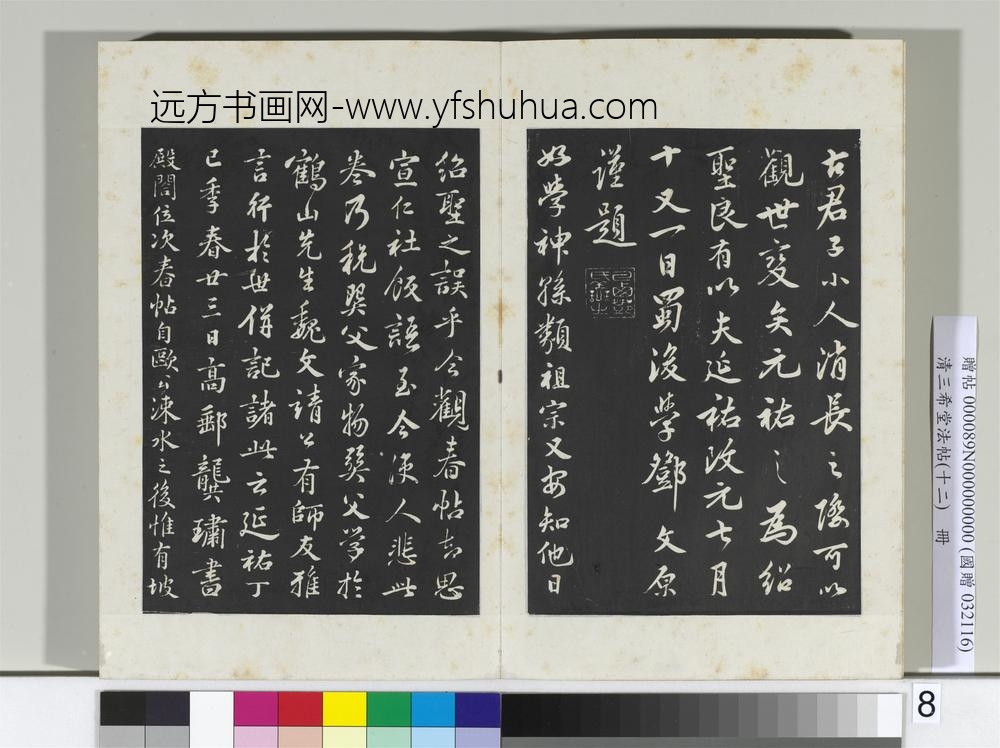 远方书画网-www.yfshuhua.com
古君子小人消長之際可以
觀世變矣元祐之為紹
聖良有以夫延祐改元七月
十又一日蜀後學鄧文原
謹題
好學神孫類祖宗又安知他日
紹聖之誤乎今觀春帖去思
宣仁社飯語至今使人悲此
卷乃税巽父家物巽父学於
鶴山先生魏文靖公有師友雅
言行於世併記諸此云延祐丁
巳季春廿三日高郵龔璛書
殿閣位次春帖自歐公涑水之後惟有坡
贈帖 000089N000000000 (國贈 032116)
清三希堂法帖(十二) 冊
8